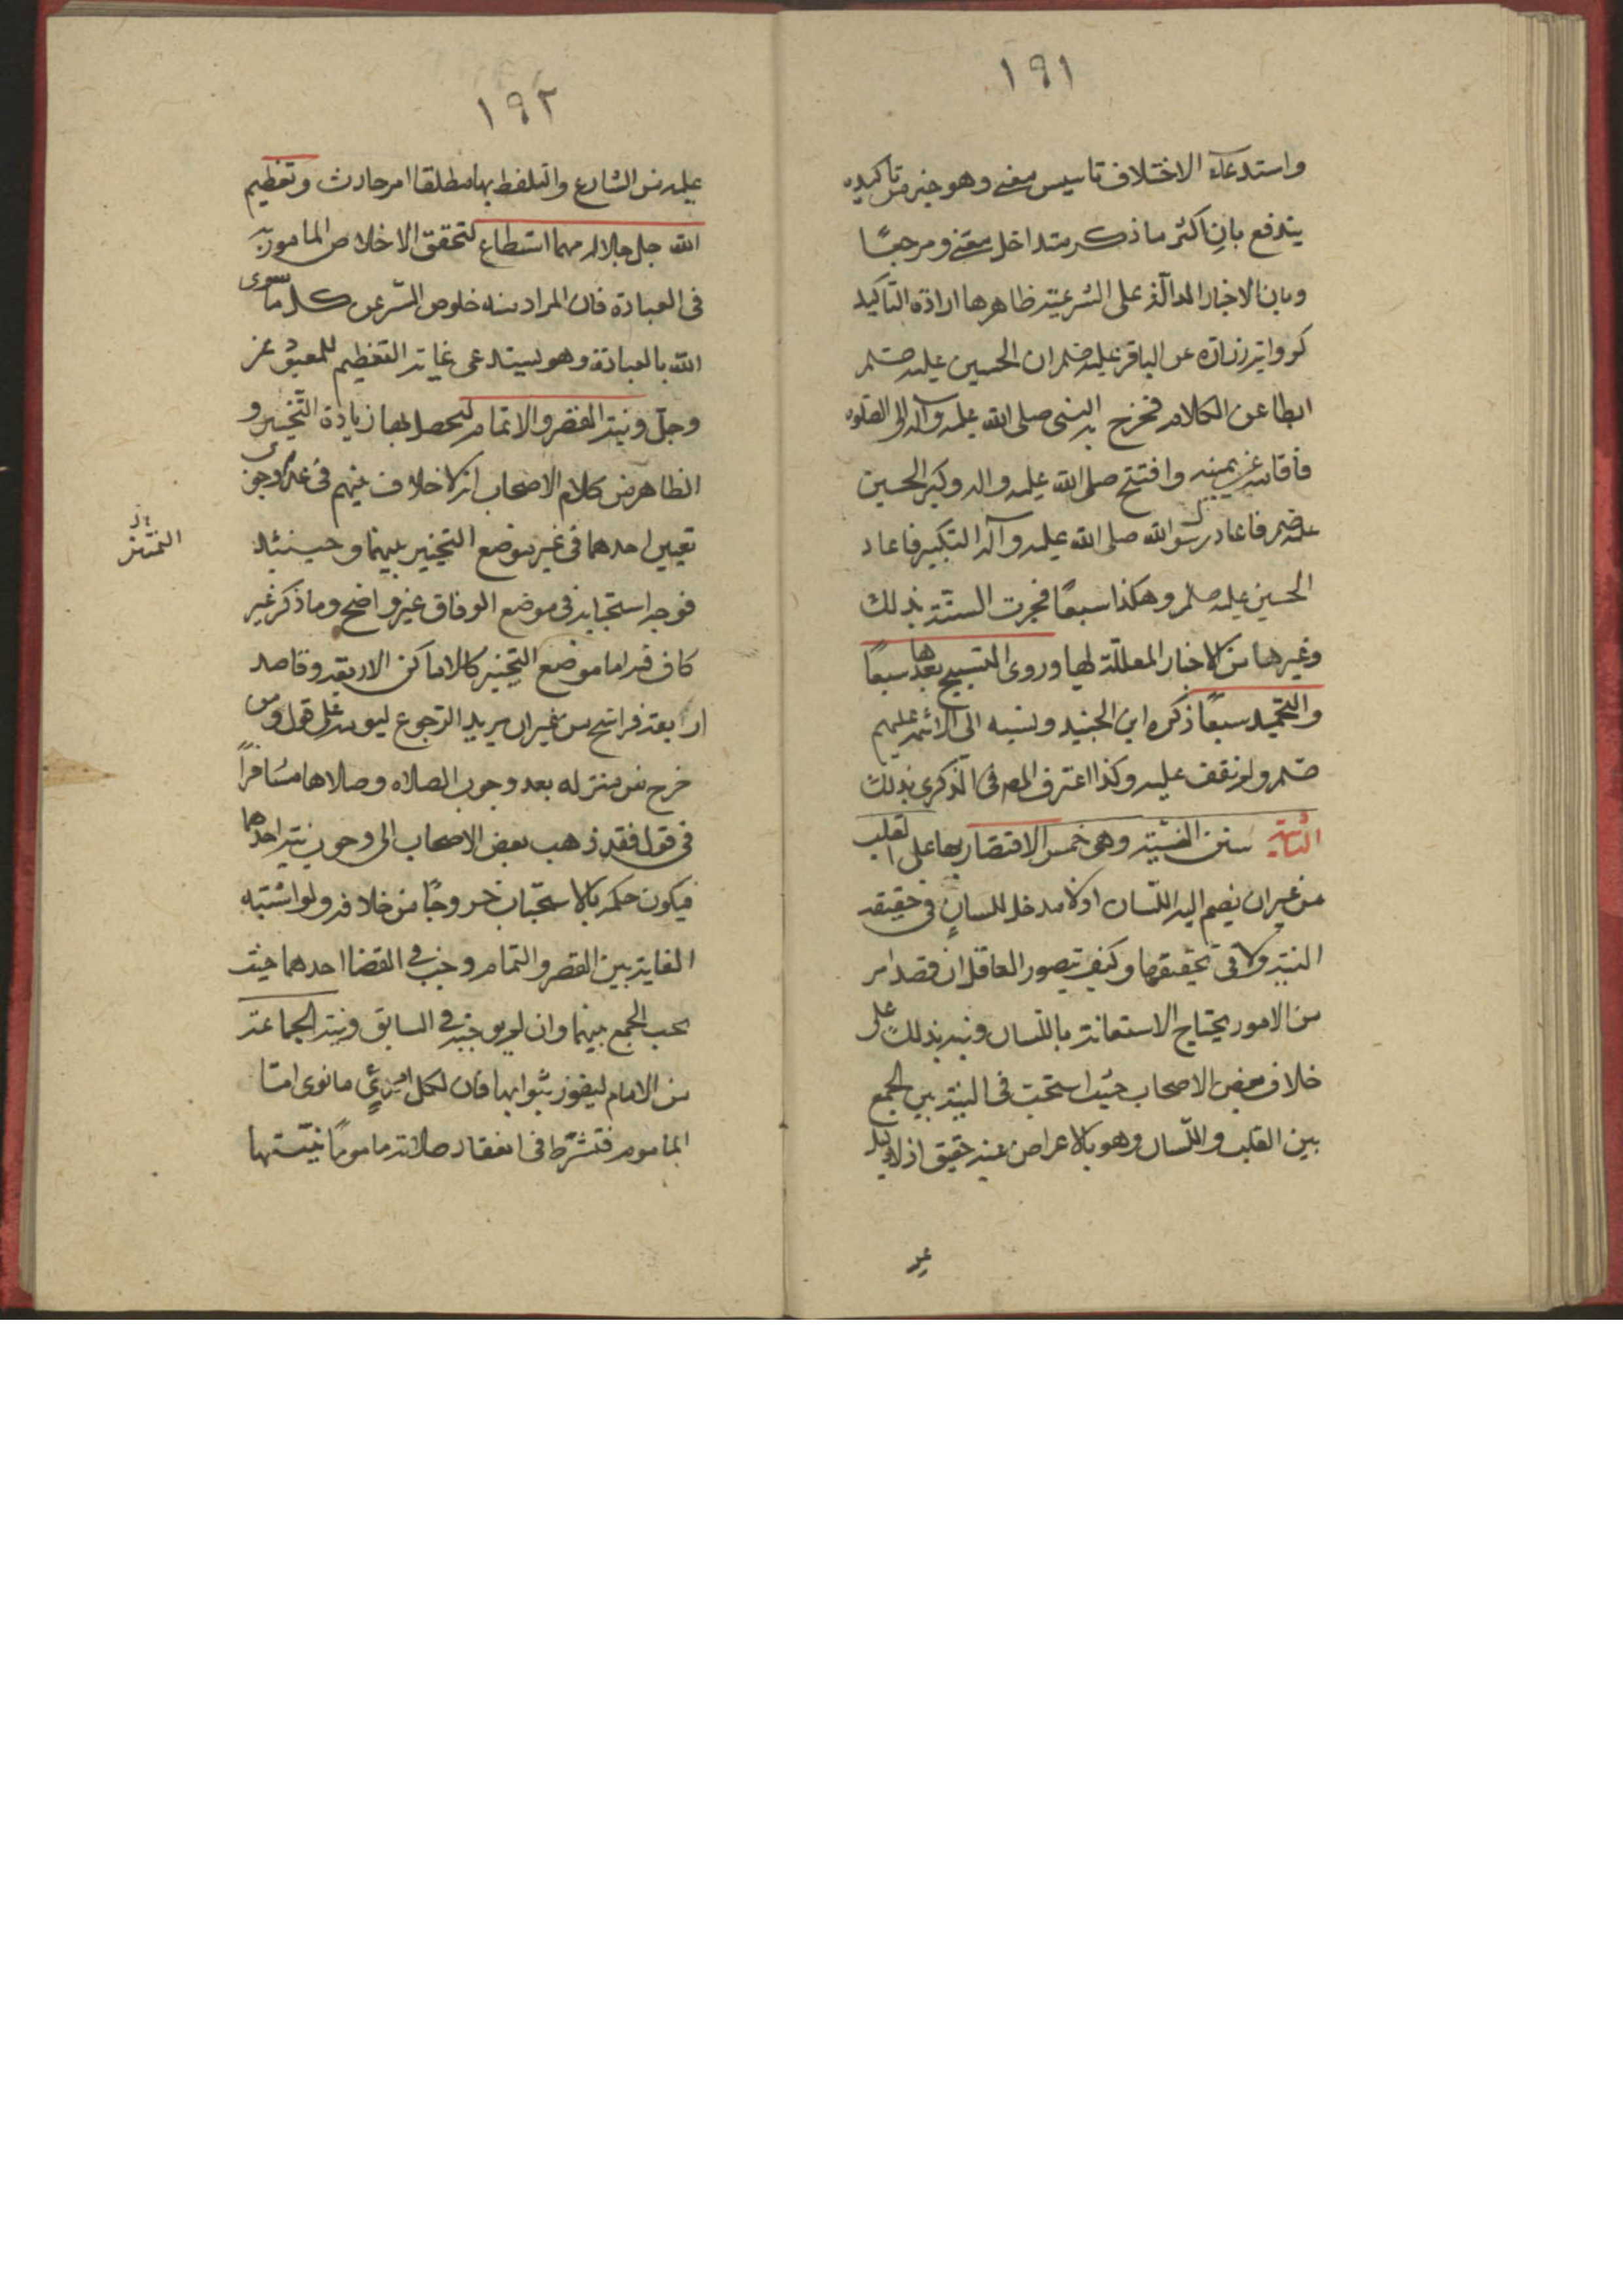 ١٩١
واستدعآء الاختلاف تاسيس معنى وهو خير من تاكيده
يندفع بان اكثر ما ذكر متداخل معنى ومرجعًا
وبان الاخبار الدالة على الشرعية ظاهرها ارادة التاكيد
كرواية زرارة عن الباقر عليه ان الحسين عليه
ابطا عن الكلام فخرج به النبى صلى الله عليه وآله الى الصلوه
فأقامه عن يمينه وافتتح صلى الله عليه واله وكبر الحسين
فاعاد رسول الله صلى الله عليه وآله التكبير فاعاد
الحسين عليه وهكذا سبعًا فجرت السنة بذلك
وغيرها من الاخبار المعللة لها وروى التسبيح بعدها سبعًا
والتحميد سبعًا ذكره ابن الجنيد ونسبه الى الائمة عليهم
ولم نقف عليه وكذا اعترف المص فى الذكرى بذلك
الثانية سنن النية وهى خمس الاقتصار بها على القلب
من غير ان يضم اليه اللسان اذ لا مدخل للسان فى حقيقة
النية ولا فى تحقيقها وكيف يتصور العاقل ان قصد امر
من الامور يحتاج الاستعانة باللسان ونبه بذلك على
خلاف بعض الاصحاب حيث استحب فى النية بين الجمع
بين القلب واللسان وهو بالاعراض عنه حقيق اذ لا دليل
عليه
١٩٢
عليه من الشارع والتلفظ بها مطلقا امر حادث وتعظيم
الله جل جلاله مهما استطاع لتحقق الاخلاص المامور به
فى العبادة فان المراد منه خلوص السر عن كل ما سوى
الله بالعبادة وهو يستدعى غاية التعظيم للمعبود عز
وجل ونية القصر والاتمام ليحصل بها زيادة التخيير و
الظاهر من كلام الاصحاب انه لا خلاف بينهم فى عدم وجوب
تعيين احدهما فى غير موضع التخيير بينهما وحينئذ
فوجه استحبابه فى موضع الوفاق غير واضح وما ذكر غير
كاف فيه اما موضع التخيير كالاماكن الاربعة وقاصد
اربعة فراسخ من غير ان يريد الرجوع ليومه على قول ومن
خرج من منزله بعد وجوب الصلاه وصلاها مسافرًا
فى قول فقد ذهب بعض الاصحاب الى وجوب نية احدهما
فيكون حكمه بالاستحباب خروجًا من خلافه ولو اشتبه
الفايتة بين القصر والتمام وجب فى القضا احدهما حيث
يجب الجمع بينهما وان لم يوجبه فى السابق ونية الجماعة
من الامام ليفوز بثوابها فان لكل امرئٍ ما نوى امّا
الماموم فتشترط فى انعقاد صلاته مامومًا نيتها